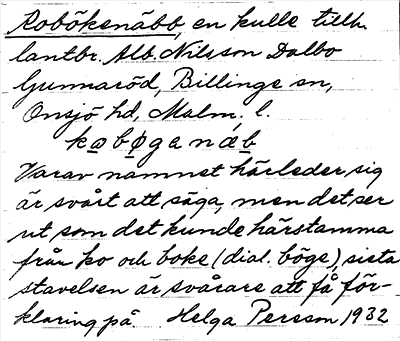 Koböksnäbb, en kulle tillh.
lantbr. Alb. Nilsson Dalbo
Gunnaröd, Billinge sn,
Onsjö hd, Malm. l.
kobøganæb
Varav namnet härleder sig
är svårt att säga, men det ser
ut som det kunde härstamma
från ko och boke (dial. böge), sista
stavelsen är svårare att få för-
klaring på. Helga Persson 1932